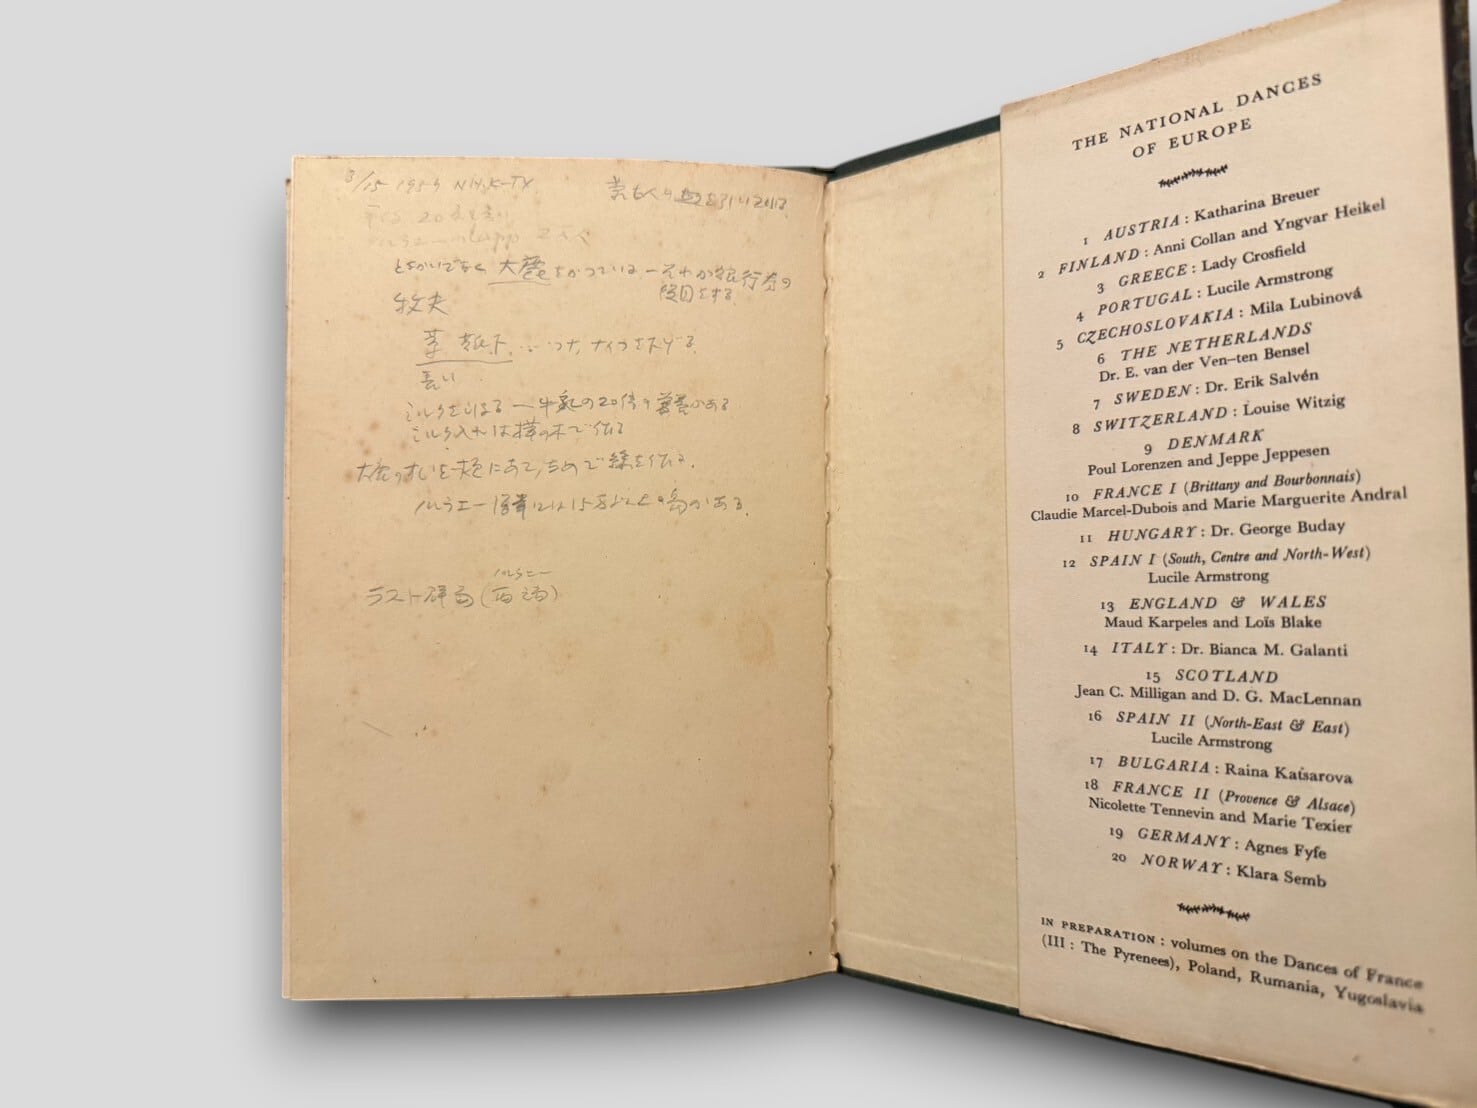 3/15 1959 NHK-TV
20
ノルウェーのLapp 2万人
となかいでなく 大鹿をかっている ー それが銀行券の
役目をする
牧夫
革 ナイフを下げる.
長い
ミルクをしぼる ー 牛乳の20倍の営養がある
ミルク入れは樺の木で作る
大鹿の
ノルウェー 15万以上の島がある.
ノルウェー
THE NATIONAL DANCES
OF EUROPE
1 AUSTRIA : Katharina Breuer
2 FINLAND : Anni Collan and Yngvar Heikel
3 GREECE : Lady Crosfield
4 PORTUGAL : Lucile Armstrong
5 CZECHOSLOVAKIA : Mila Lubinová
6 THE NETHERLANDS
Dr. E. van der Ven-ten Bensel
7 SWEDEN : Dr. Erik Salvén
8 SWITZERLAND : Louise Witzig
9 DENMARK
Poul Lorenzen and Jeppe Jeppesen
10 FRANCE I (Brittany and Bourbonnais)
Claudie Marcel-Dubois and Marie Marguerite Andral
11 HUNGARY : Dr. George Buday
12 SPAIN I (South, Centre and North-West)
Lucile Armstrong
13 ENGLAND & WALES
Maud Karpeles and Loïs Blake
14 ITALY : Dr. Bianca M. Galanti
15 SCOTLAND
Jean C. Milligan and D. G. MacLennan
16 SPAIN II (North-East & East)
Lucile Armstrong
17 BULGARIA : Raina Katsarova
18 FRANCE II (Provence & Alsace)
Nicolette Tennevin and Marie Texier
19 GERMANY : Agnes Fyfe
20 NORWAY : Klara Semb
IN PREPARATION : volumes on the Dances of France
(III : The Pyrenees), Poland, Rumania, Yugoslavia